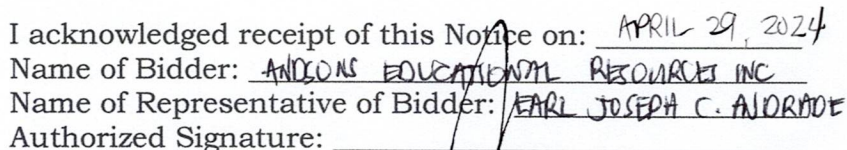 I acknowledged receipt of this Notice on: APRIL 29, 2024
Name of Bidder: ANDSONS EDUCATIONAL RESOURCES INC
Name of Representative of Bidder: EARL JOSEPH C. ANDRADE
Authorized Signature: